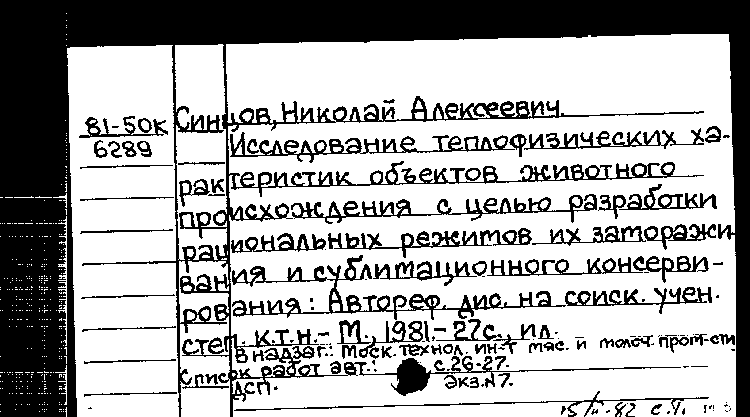 81-50к
6289
Синцов, Николай Алексеевич.
Исследование теплофизических ха-
рактеристик объектов животного
происхождения с целью разработки
рациональных режимов их заморажи
вания и сублимационного консерви-
рования: Автореф. дис. на соиск. учен.
степ. к.т.н. - М., 1981. - 27с., ил.
В надзаг.: Моск. технол. ин-т мяс. и молоч. пром-сти
Список работ авт.: с.26-27.
ДСП. Экз.№7.